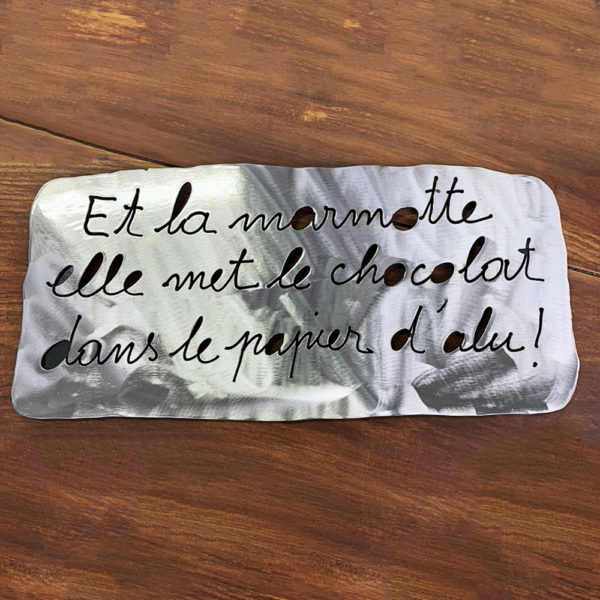 Et la marmotte
elle met le chocolat
dans le papier d'alu !